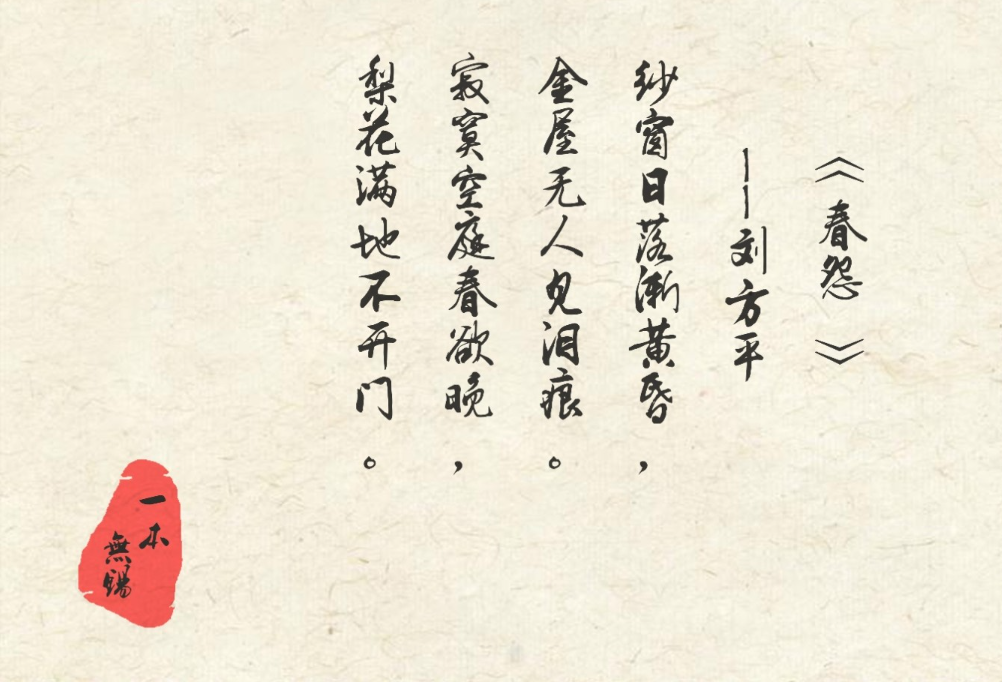 《春怨》
——刘方平
纱窗日落渐黄昏，
金屋无人见泪痕。
寂寞空庭春欲晚，
梨花满地不开门。
一本
無賜